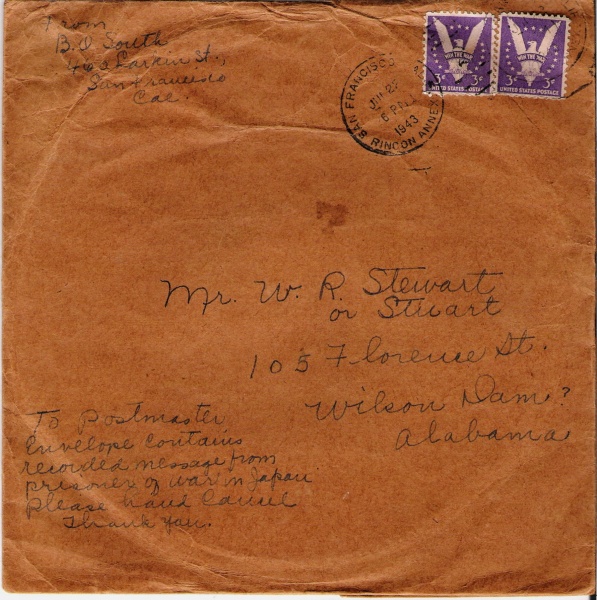 From
B.D South
Larkin St.,
San Francisco
Cal.
WIN THE WAR
3¢ 3¢
UNITED STATES POSTAGE
WIN THE WAR
3¢ 3¢
UNITED STATES POSTAGE
SAN FRANCISCO
6 PM
1943
RINCON ANNEX
Mr. W. R. Stewart
or Stuart
105 Florence St.
Wilson Dam?
Alabama
To Postmaster
Envelope contains
recorded message from
prisoner of war in Japan
please hand cancel
Thank you.